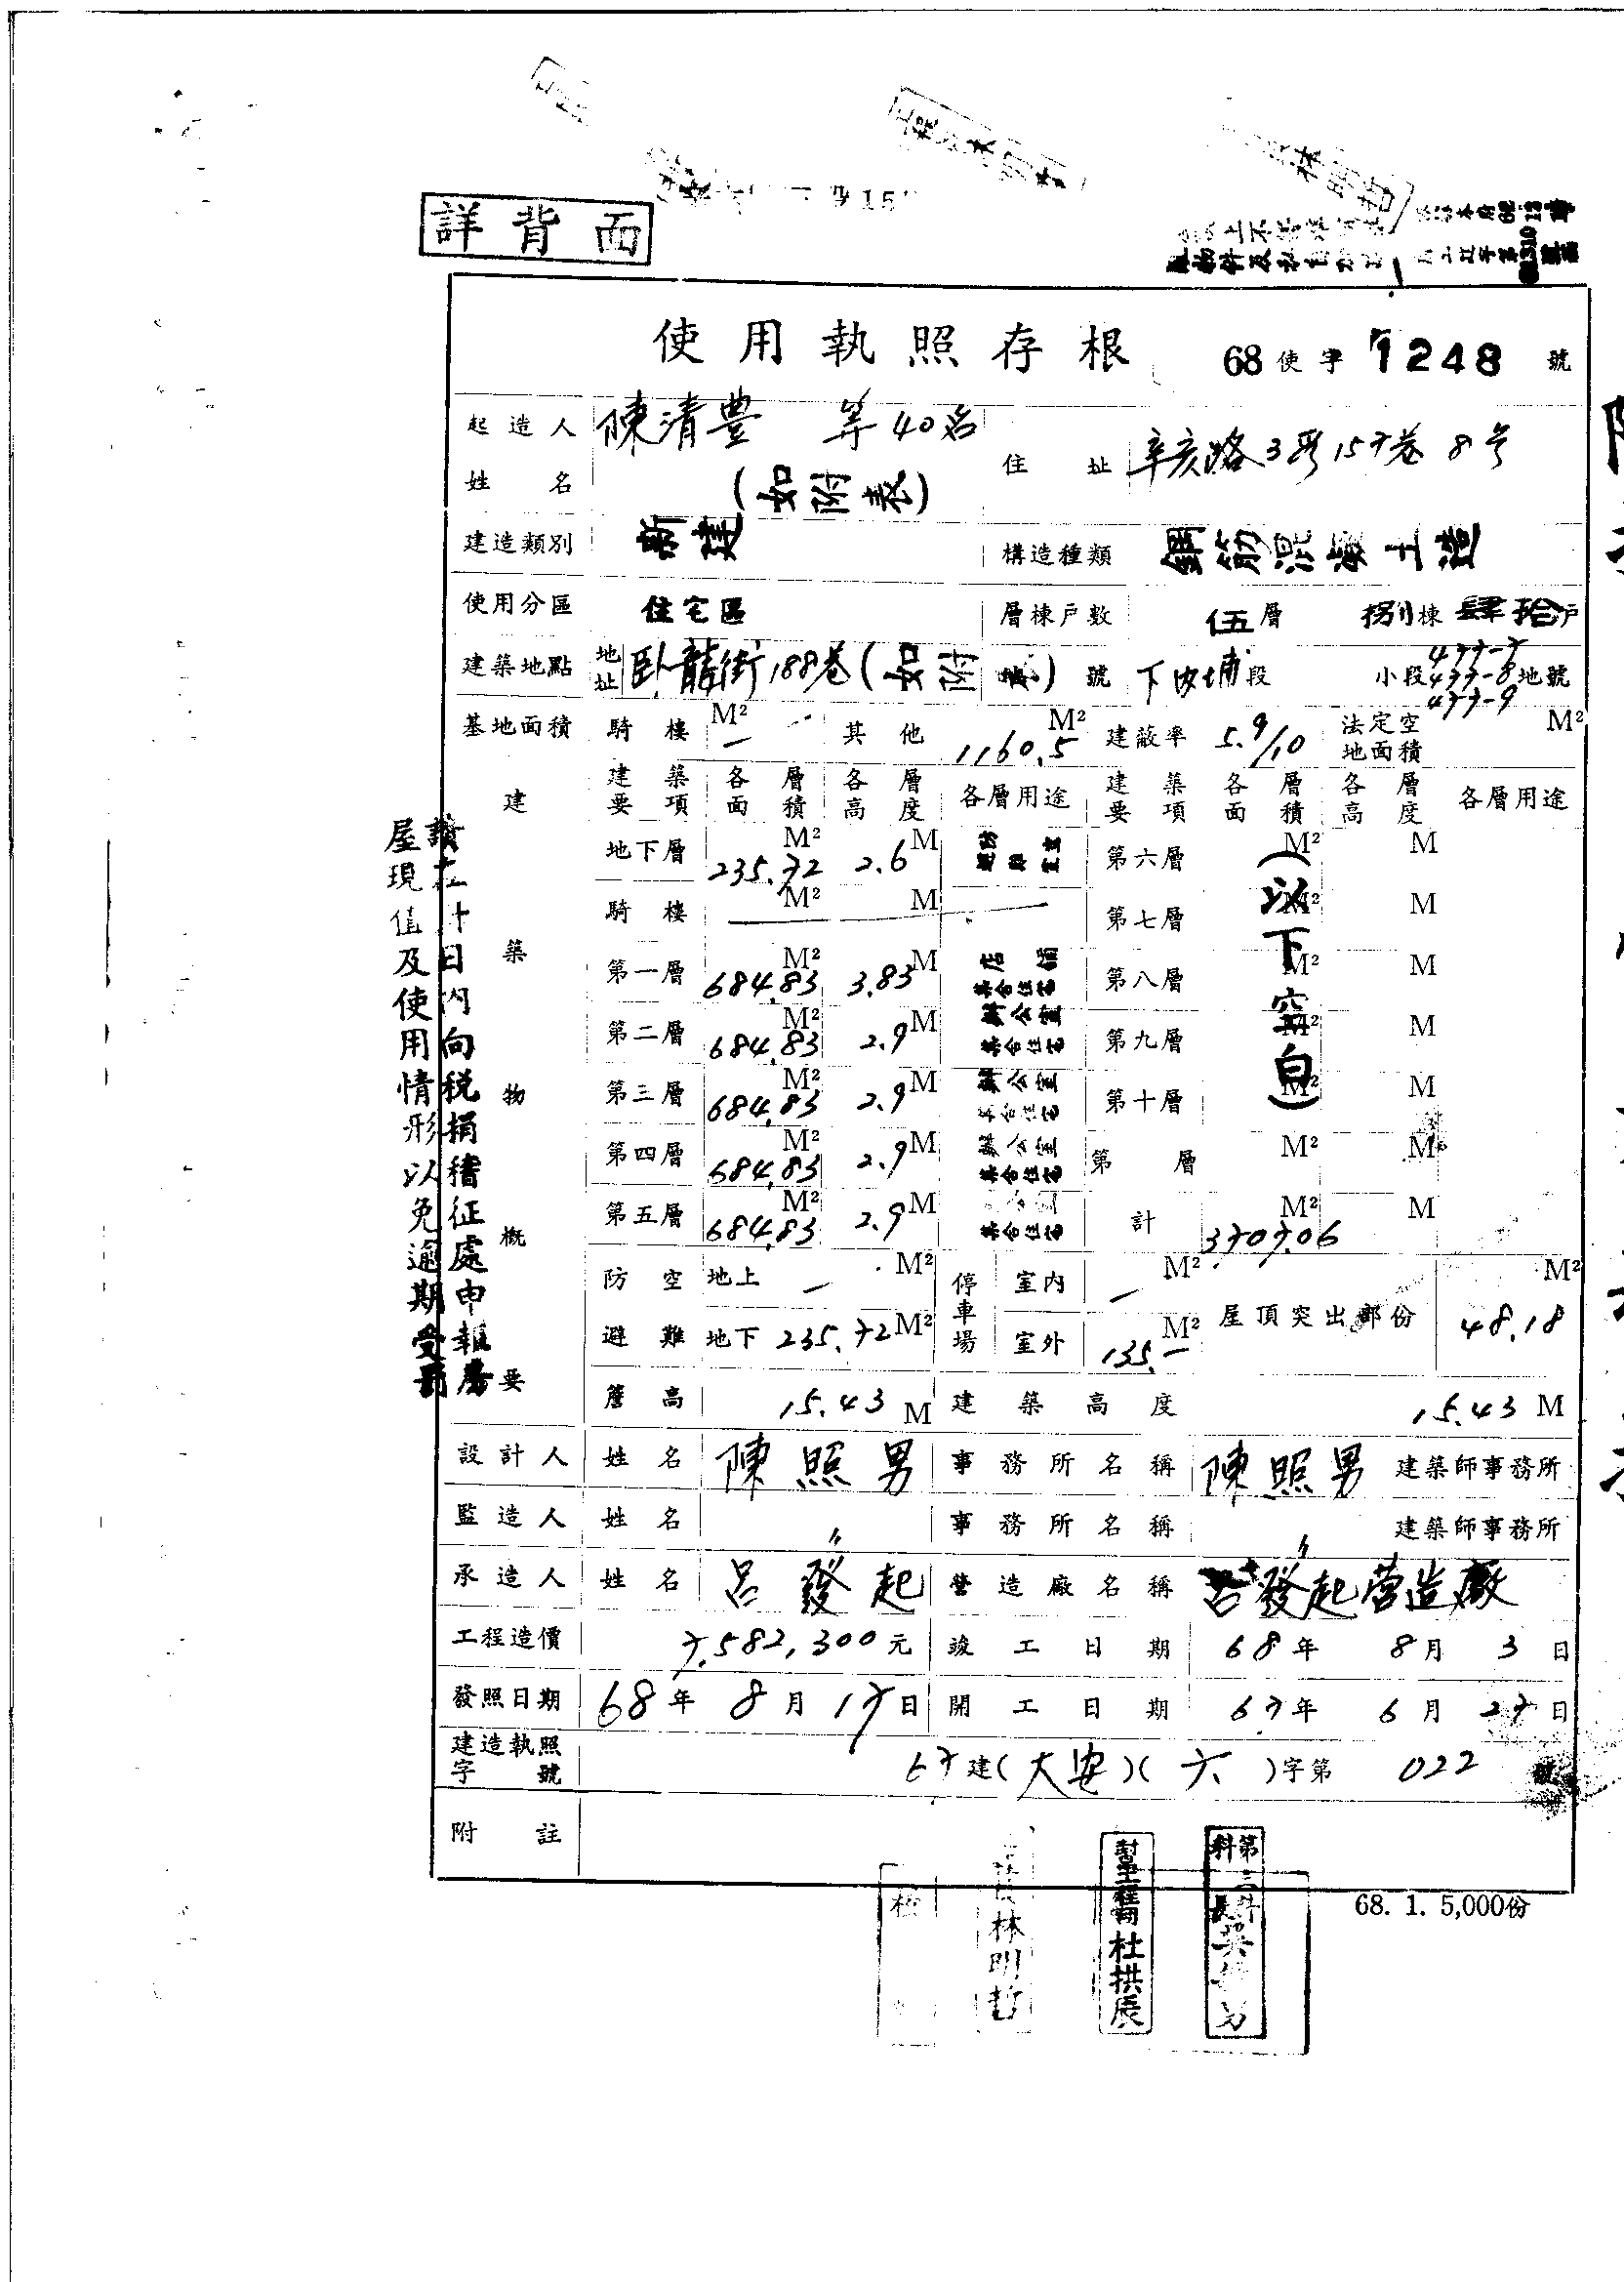 詳背面
使用執照存根 68使字1248號
起造人姓名 陳清豊 等40名 (如附表)
住址 辛亥路3段157巷8号
建造類別 新建
構造種類 鋼筋混凝土造
使用分區 住宅區
層棟戶數 伍層 捌棟 肆拾戶
建築地點 地址 臥龍街188巷(如附表)號 下內埔段 小段 477-7 477-8 477-9 地號
基地面積 騎樓 M² — 其他 1160.5 M² 建蔽率 5.9/10 法定空地面積 M²
建築物概要
建築要項 各層面積 各層高度 各層用途 建築要項 各層面積 各層高度 各層用途
地下層 235.72 M² 2.6 M 第六層 M² M
騎樓 M² M 第七層 M² M
第一層 684.83 M² 3.83 M 店舖 集合住宅 第八層 M² M
第二層 684.83 M² 2.9 M 辦公室 集合住宅 第九層 M² M
第三層 684.83 M² 2.9 M 辦公室 集合住宅 第十層 M² M
第四層 684.83 M² 2.9 M 辦公室 集合住宅 第 層 M² M
第五層 684.83 M² 2.9 M 集合住宅 計 3707.06 M² M
(以下空白)
防空避難 地上 — M² 地下 235.72 M²
停車場 室內 — M² 室外 135.— M²
屋頂突出部份 48.18 M²
簷高 15.43 M 建築高度 15.43 M
設計人 姓名 陳照男 事務所名稱 陳照男 建築師事務所
監造人 姓名 〃 事務所名稱 〃 建築師事務所
承造人 姓名 呂發起 營造廠名稱 呂發起营造廠
工程造價 7,582,300元 竣工日期 68年8月3日
發照日期 68年8月17日 開工日期 67年6月27日
建造執照字號 67建(大安)(六)字第022號
附註
請在十日內向稅捐稽征處申報房
屋現值及使用情形以免逾期受罰
林明哲
副工程司杜拱辰
第三科
科長
68. 1. 5,000份